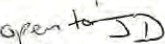 open to JD